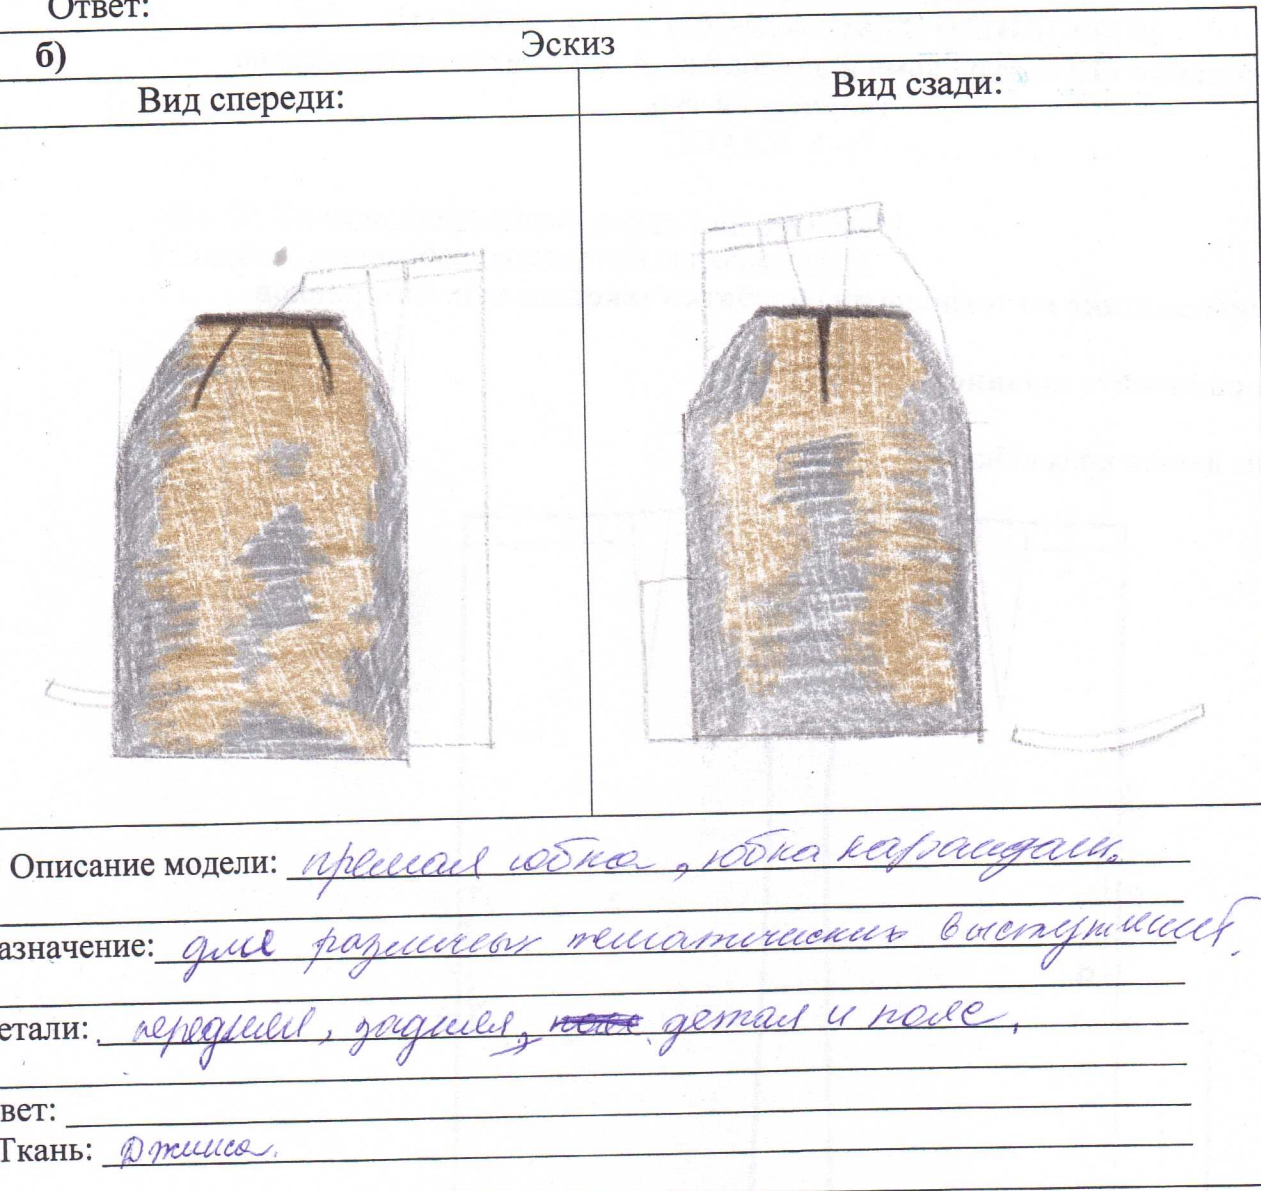 Ответ:
б) Эскиз
Вид спереди: Вид сзади:
Описание модели: прямая юбка, юбка карандаш.
азначение: для различных тематических выступлений.
етали: передняя, задняя, детал и пояс.
вет:
Ткань: Джинса.